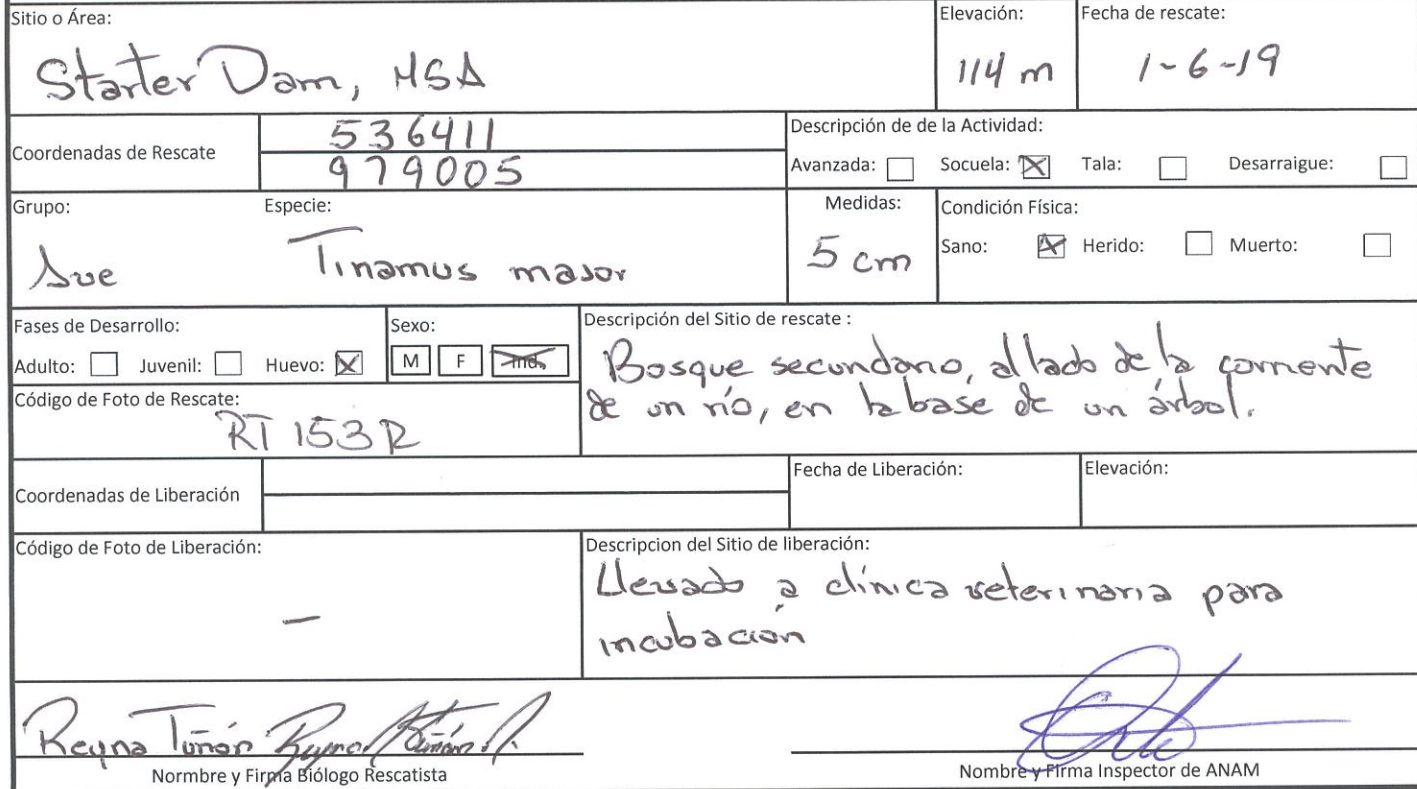 Sitio o Área:
Starter Dam, MSA
Elevación:
114 m
Fecha de rescate:
1-6-19
Coordenadas de Rescate
536411
979005
Descripción de de la Actividad:
Avanzada: Socuela: Tala: Desarraigue:
Grupo:
Ave
Especie:
Tinamus major
Medidas:
5 cm
Condición Física:
Sano: Herido: Muerto:
Fases de Desarrollo:
Adulto: Juvenil: Huevo:
Sexo:
M F Ind.
Descripción del Sitio de rescate :
Bosque secundario, al lado de la corriente
de un río, en la base de un árbol.
Código de Foto de Rescate:
RT 153 R
Coordenadas de Liberación
Fecha de Liberación:
Elevación:
Código de Foto de Liberación:
—
Descripcion del Sitio de liberación:
Llevado a clínica veterinaria para
incubación
Reyna Tuñón
Normbre y Firma Biólogo Rescatista
Nombre y Firma Inspector de ANAM